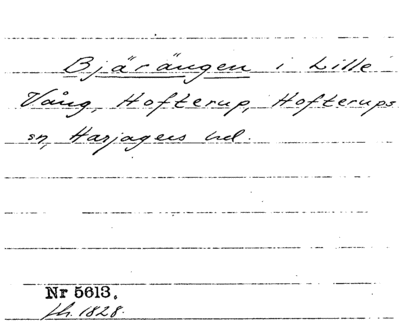 Bjärängen i Lille
Vång, Hofterup, Hofterups
sn, Harjagers hd.
Nr 5613.
fh. 1828.